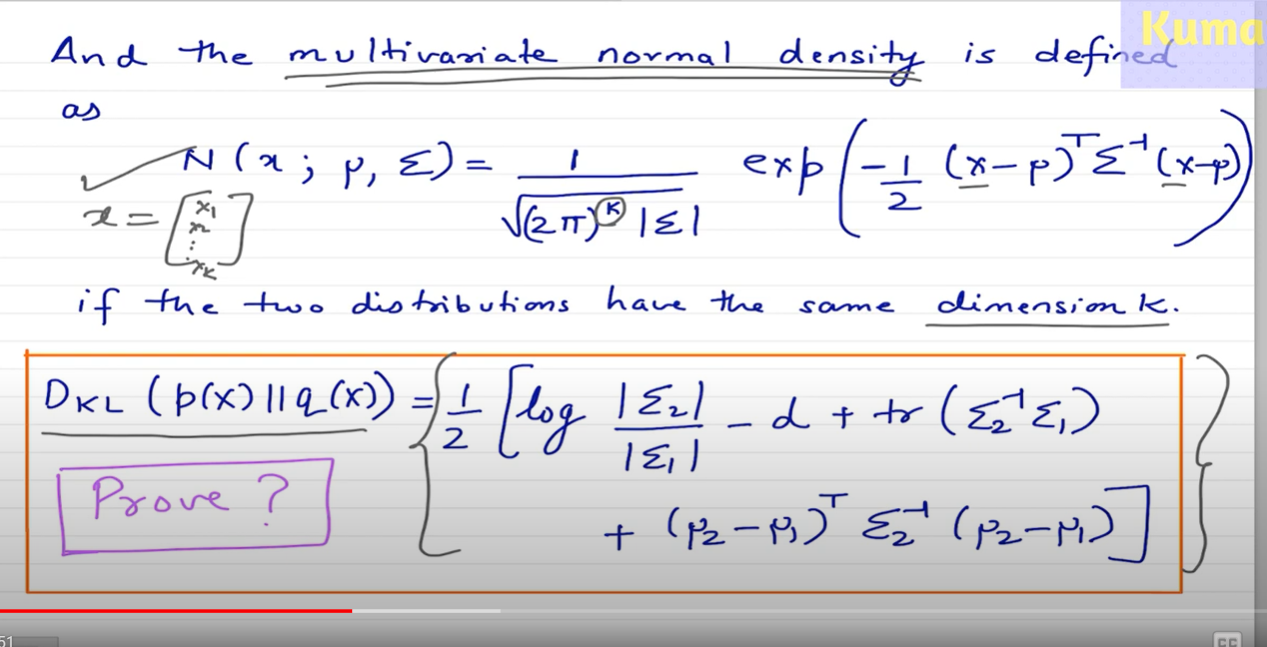 Kuma
And the multivariate normal density is defined
as
N(x; μ, Σ) = 1 / √((2π)^K |Σ|) exp(-1/2 (x-μ)^T Σ^-1 (x-μ))
x = [x1 x2 ⋮ xK]
if the two distributions have the same dimension K.
DKL (p(x) || q(x)) = { 1/2 [log |Σ2| / |Σ1| - d + tr (Σ2^-1 Σ1)
Prove ?
+ (μ2-μ1)^T Σ2^-1 (μ2-μ1)] }
51
CC